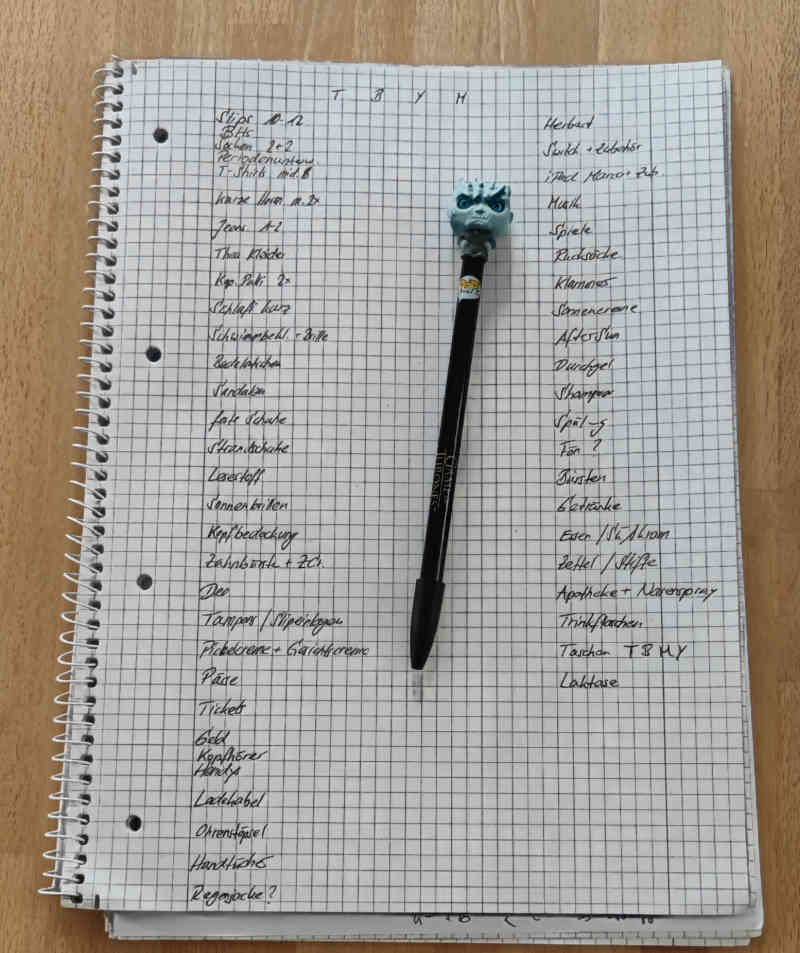 T B Y M
Slips 10-12
BHs
Socken 2+2
Periodenunterw.
T-Shirts mind. 8
kurze Hosen m. 2x
Jeans 1-2
Thea Kleider
Kap. Pulli 2x
Schlafi kurz
Schwimmbekl. + Brille
Badelatschen
Sandalen
feste Schuhe
Strandschuhe
Lesestoff
Sonnenbrillen
Kopfbedeckung
Zahnbürste + ZCr.
Deo
Tampons / Slipeinlagen
Pickelcreme + Gesichtscreme
Pässe
Tickets
Geld
Kopfhörer
Handys
Ladekabel
Ohrenstöpsel
Handtücher
Regenjacke?
Herbert
Switch + Zubehör
iPad Marco + Zub.
Musik
Spiele
Rucksäcke
Klammer
Sonnencreme
AfterSun
Duschgel
Shampoo
Spül-g
Fön ?
Bürsten
Getränke
Essen / Süßkram
Zettel / Stifte
Apotheke + Nasenspray
Trinkflaschen
Taschen T B M Y
Laktase
GAME OF THRONES